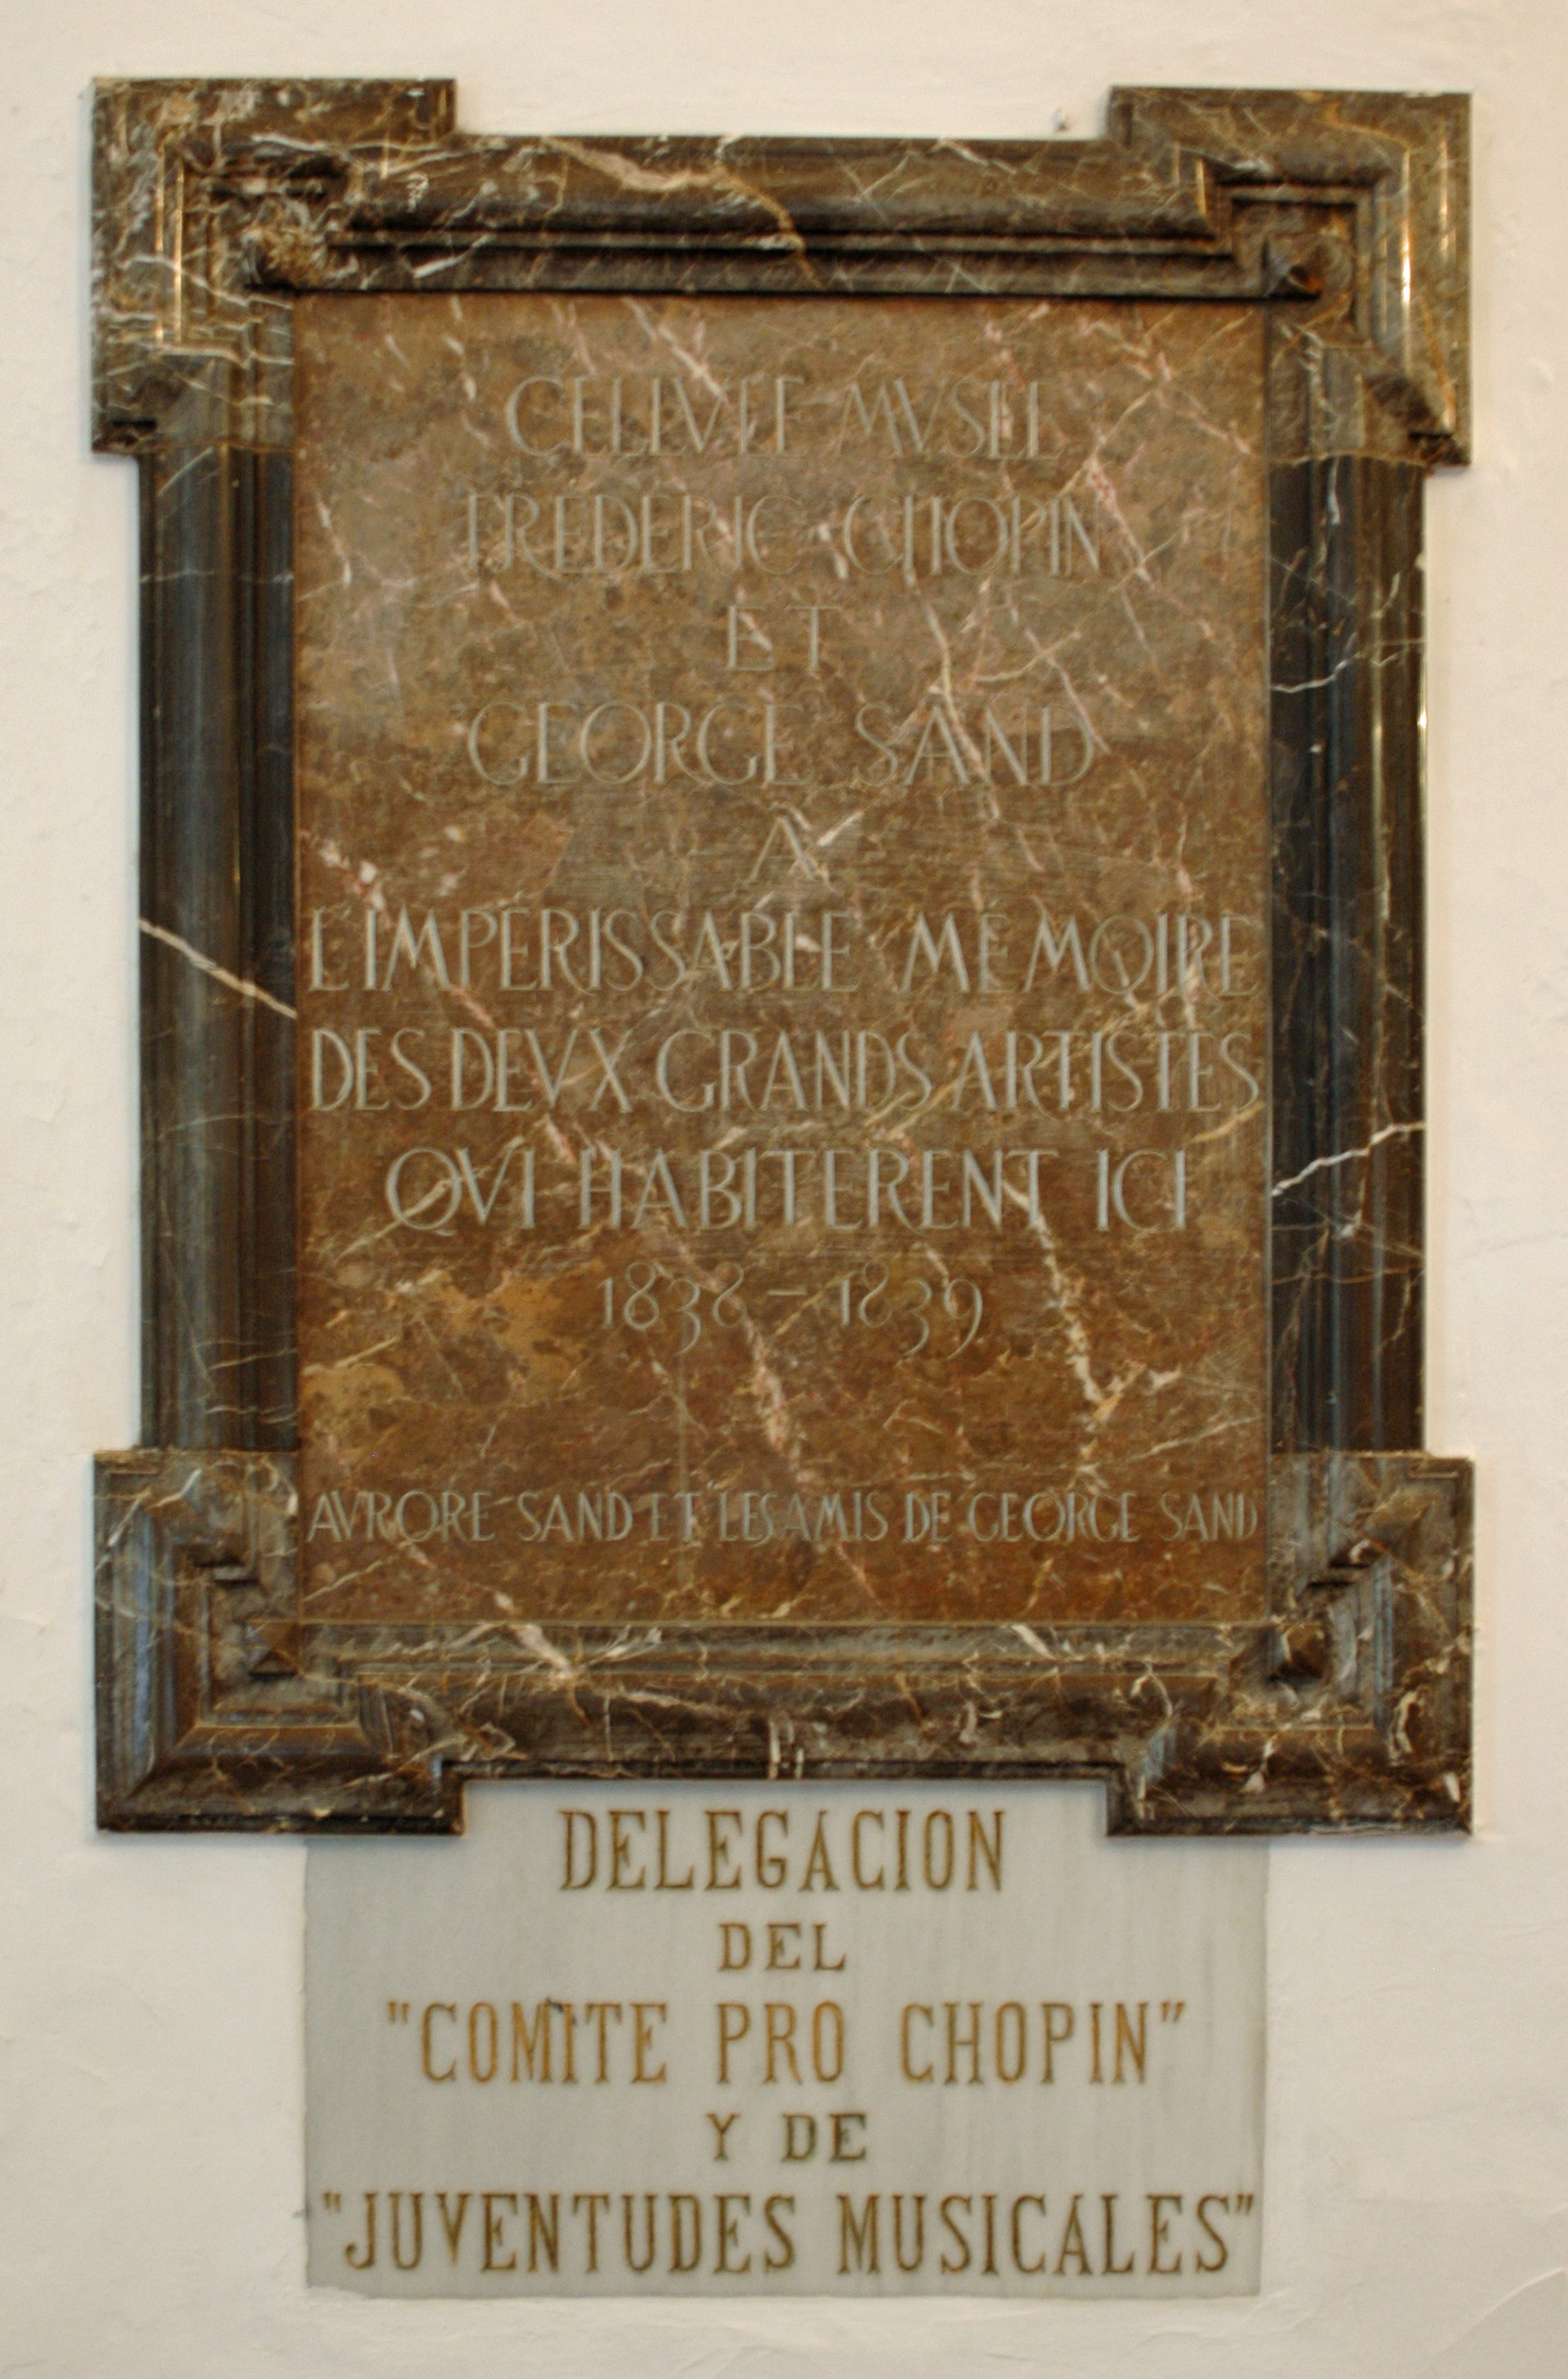 CELLVLE MVSEE
FREDERIC CHOPIN
ET
GEORGE SAND
A
L'IMPERISSABLE MEMOIRE
DES DEVX GRANDS ARTISTES
QVI HABITERENT ICI
1838 – 1839
AVRORE SAND ET LES AMIS DE GEORGE SAND
DELEGACION
DEL
"COMITE PRO CHOPIN"
Y DE
"JUVENTUDES MUSICALES"